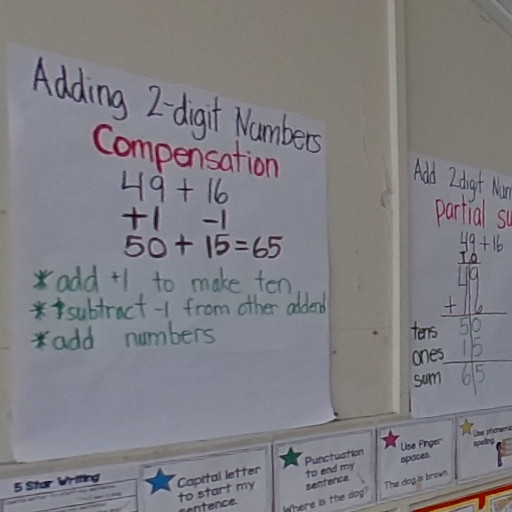 Adding 2-digit Numbers
Compensation
49 + 16
+1 -1
50 + 15 = 65
*add +1 to make ten
*subtract -1 from other addend
*add numbers
Add 2digit
partial
49 + 16
49
+ 16
tens 50
ones 15
sum 65
5 Star Writing
Capital letter
to start my
sentence.
Punctuation
to end my
sentence.
Where is the dog?
Use finger
spaces.
The dog is brown
Use
spelling